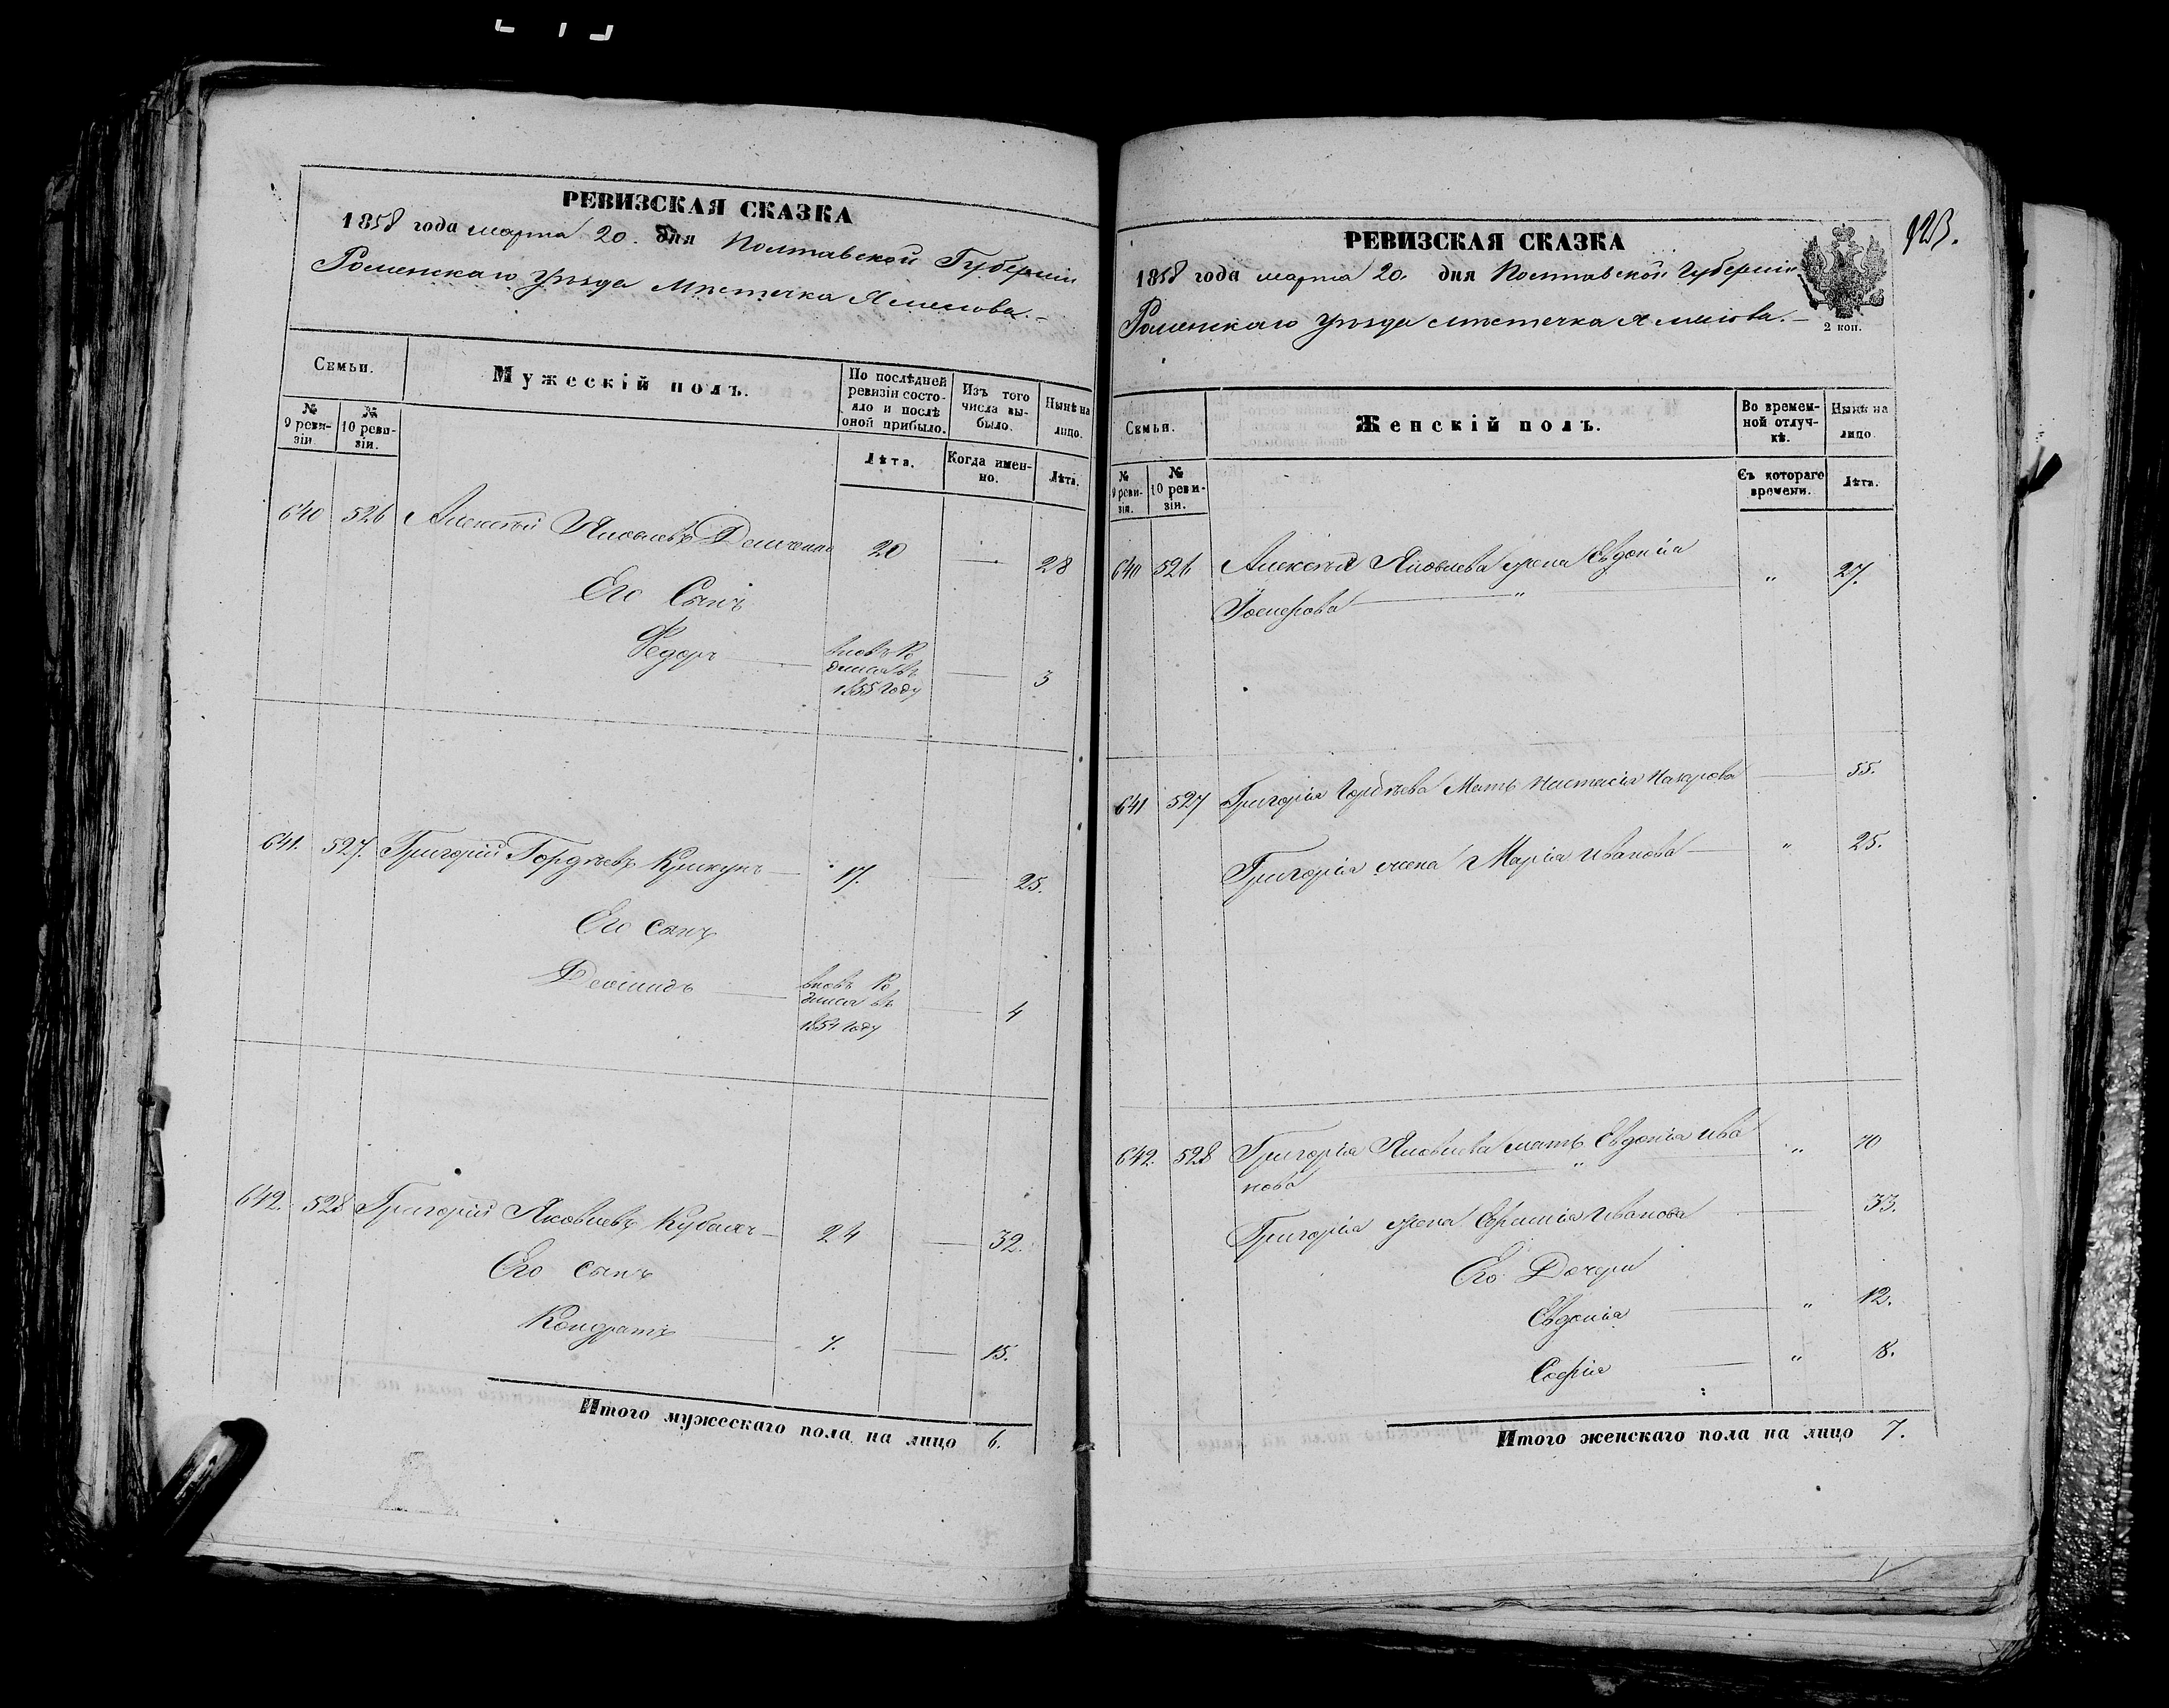 РЕВИЗСКАЯ СКАЗКА
1858 года марта 20. дня Полтавской Губерніи
Роменскаго Уѣзда Мѣстечка Смелова.
Семьи.
Мужескій полъ.
По послѣдней ревизіи состояло и послѣ оной прибыло.
Изъ того числа выбыло.
Нынѣ на лицо.
№ 9 ревизіи.
№ 10 ревизіи.
Лѣта.
Когда именно.
Лѣта.
640 526 Алексѣй Яковлевъ 20 28
Его Сынъ
Федоръ вновь Ро
дился въ
1855 году 3
641. 527. Григорій Гордѣевъ 17. 25.
Его сынъ
вновь Ро
дился въ
1854 году 4
642. 528 Григорій Яковлевъ 24 32.
Его сынъ
Кондратъ 7. 15.
Итого мужескаго пола на лицо 6.
923.
РЕВИЗСКАЯ СКАЗКА
1858 года марта 20. дня Полтавской Губерніи
Роменскаго Уѣзда мѣстечка Смелова.
2 коп.
Семьи.
Женскій полъ.
Во временной отлучкѣ.
Нынѣ на лицо.
№ 9 ревизіи.
№ 10 ревизіи.
Съ котораго времени.
Лѣта.
640 526 Алексѣя Яковлева жена Евдокія " 27.
"
641 527 Григорія Гордѣева Мать Настасія 55.
Григорія жена Марія Иванова " 25.
642. 528 Григорія Яковлева мать Евдокія Ива " 70
нова "
Григорія жена Иванова 33.
Его Дочери
Евдокія " 12.
Софія " 8.
Итого женскаго пола на лицо 7.